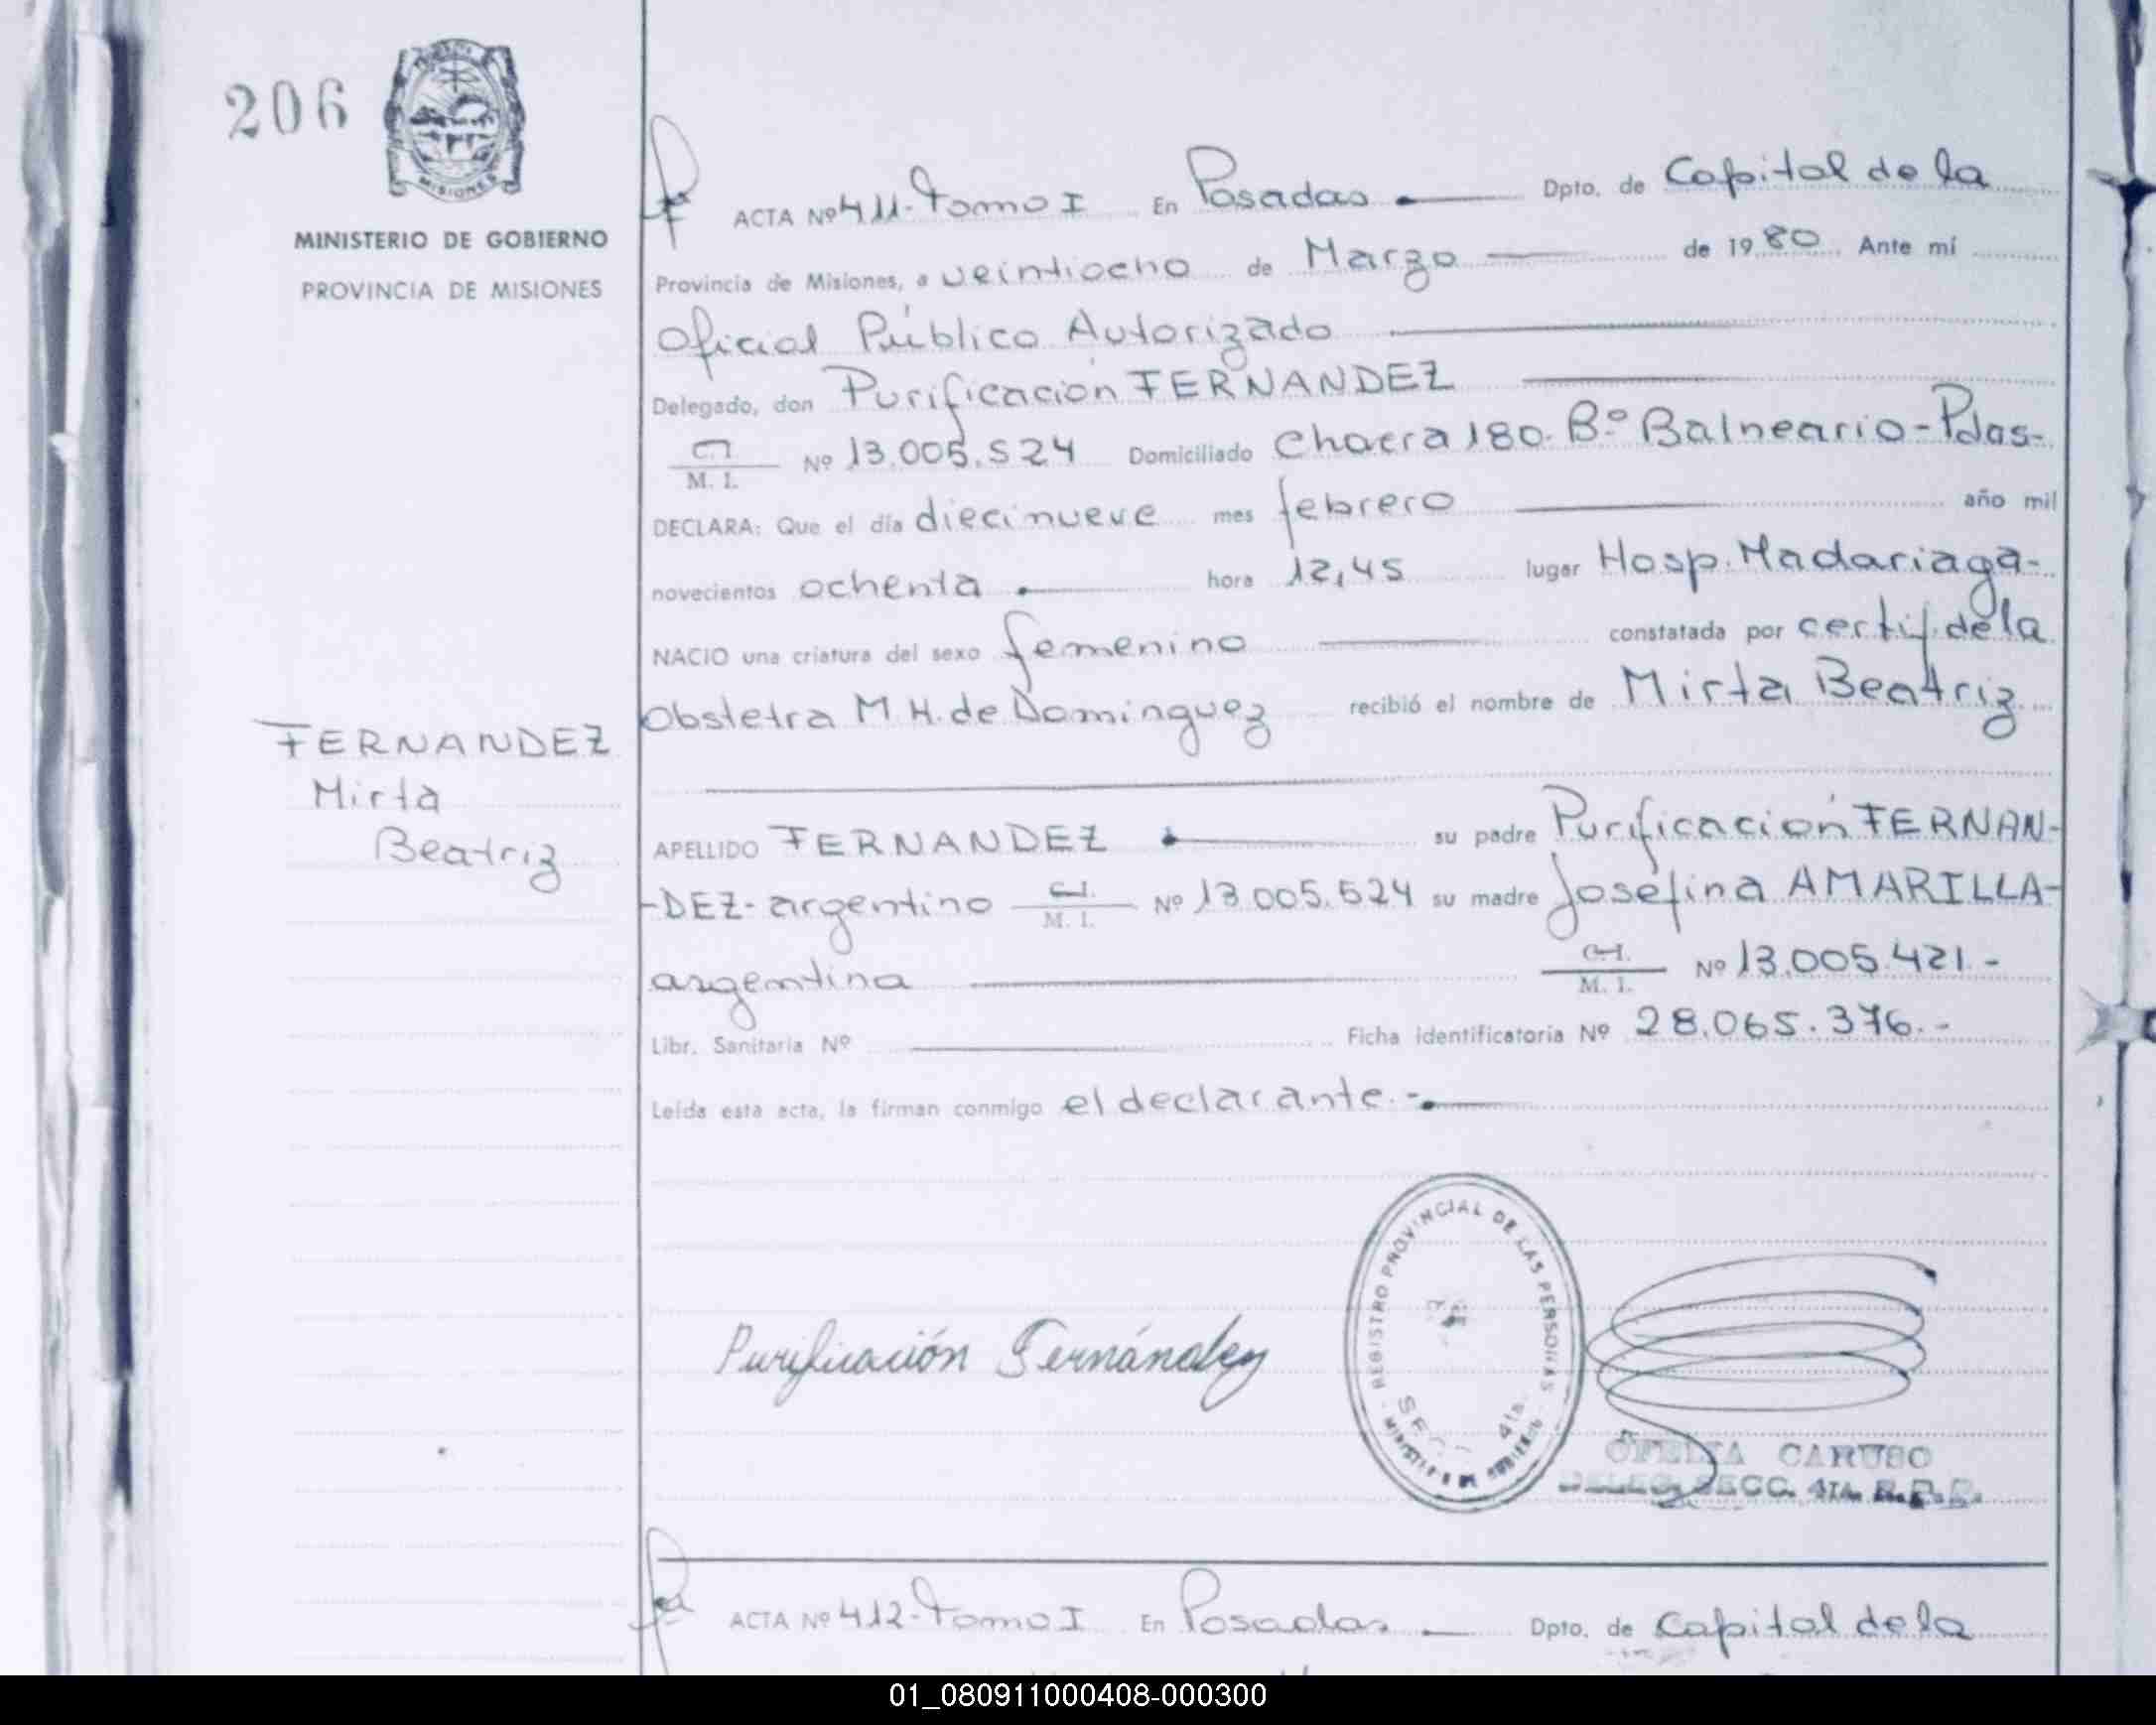 206
MISIONES
MINISTERIO DE GOBIERNO
PROVINCIA DE MISIONES
ACTA Nº 411-Tomo I En Posadas Dpto. de Capital de la
Provincia de Misiones, a veintiocho de Marzo de 1980 Ante mí
Oficial Público Autorizado
Delegado, don Purificación FERNANDEZ
C.I.
M. I. Nº 13.005.524 Domiciliado Chacra 180. Bº Balneario-Pdas-
DECLARA: Que el día diecinueve mes febrero año mil
novecientos ochenta hora 12,45 lugar Hosp. Madariaga-
NACIO una criatura del sexo femenino constatada por certif. de la
Obstetra M H. de Dominguez recibió el nombre de Mirta Beatriz
FERNANDEZ
Mirta
Beatriz
APELLIDO FERNANDEZ su padre Purificación FERNAN-
-DEZ- argentino C.I.
M. I. Nº 13.005.524 su madre Josefina AMARILLA-
argentina C.I.
M. I. Nº 13.005.421.-
Libr. Sanitaria Nº Ficha identificatoria Nº 28.065.376.-
Leída esta acta, la firman conmigo el declarante.-
Purificación Fernández
REGISTRO PROVINCIAL DE LAS PERSONAS
4ta.
OFELIA CARUSO
DELEG. SECC. 4TA. R.P.P.
ACTA Nº 412-Tomo I En Posadas Dpto. de Capital de la
01_080911000408-000300